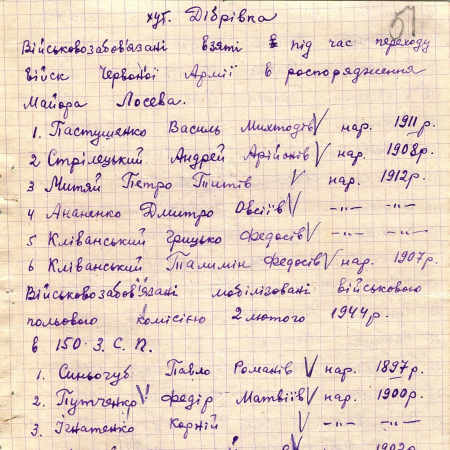 хут. Дібрівка
51
Військовозабов'язані взяті під час переходу
військ Червоної Армії в роспорядження
Майора Лосева.
1. Пастушенко Василь Михтодів V нар. 1911 р.
2 Стрілецький Андрей Арійонів V нар. 1908 р.
3 Митяй Петро Титів V нар. 1912 р.
4 Ананенко Дмитро Овсіїв V —"— —"—
5 Кліванський Грицько Федосів V —"— —"—
6 Кліванський Талимін Федосів V нар. 1907 р.
Військовозабов'язані мобілізовані військового
польового комісією 2 лютого 1944 р.
в 150 З. С. П.
1. Синьочуб Павло Романів V нар. 1897 р.
2. Путченко V Федір Матвіїв V нар. 1900 р.
3. Ігнатенко Корній V —"— —"—